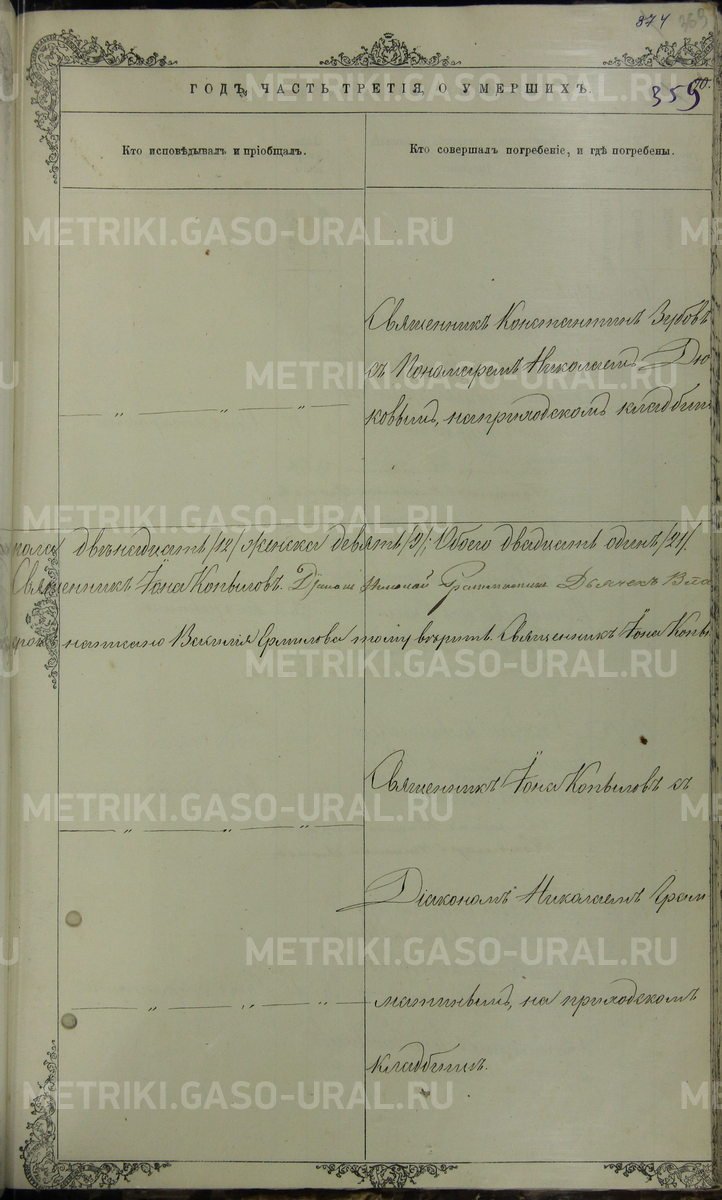 374 369
ГОДЪ, ЧАСТЬ ТРЕТІЯ, О УМЕРШИХЪ.
359
Кто исповѣдывалъ и пріобщалъ.
Кто совершалъ погребеніе, и гдѣ погребены.
Священникъ Константинъ Зубовъ
съ Пономаремъ Николаемъ Дю
ковымъ, на приходскомъ кладбищ
— „ — „ — „ —
пола двѣнадцать /12/ женска девять /9/; Обоего двадцать одинъ /21/.
Священникъ Іона Копыловъ. Діаконъ Николай Грамматинъ Дьячекъ
написано Василія Ермилова тому вѣрить. Священникъ Іона Копы
Священникъ Іона Копыловъ съ
— „ — „ — „ —
Діакономъ Николаемъ Грам
— „ — „ — „ —
матинымъ, на приходскомъ
кладбищѣ.
METRIKI.GASO-URAL.RU